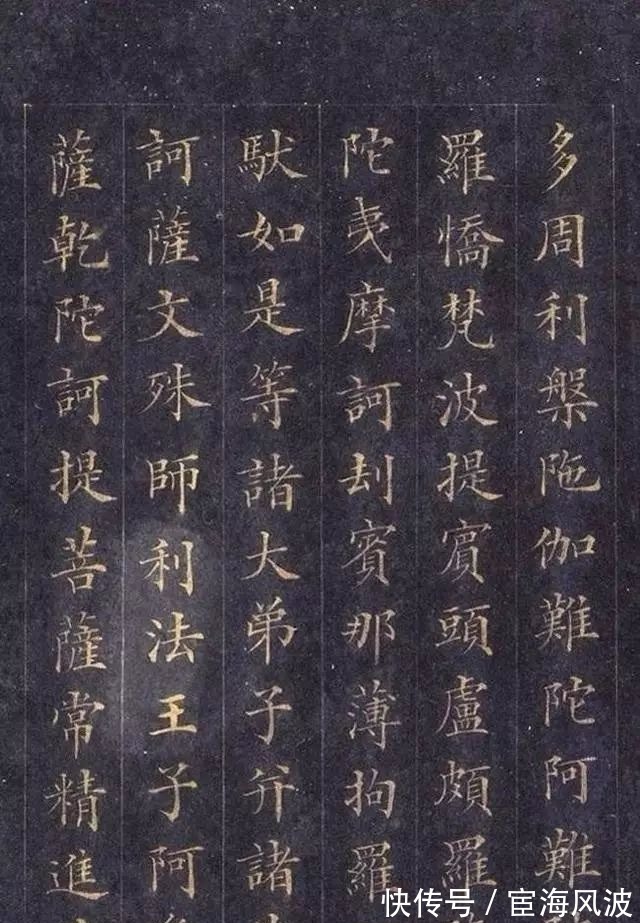 多周利槃陁伽難陀阿難
羅憍梵波提賓頭盧頗羅
陀夷摩訶刦賓那薄拘羅
馱如是等諸大弟子并諸
訶薩文殊師利法王子阿
薩乾陀訶提菩薩常精進
快传号／宦海风波